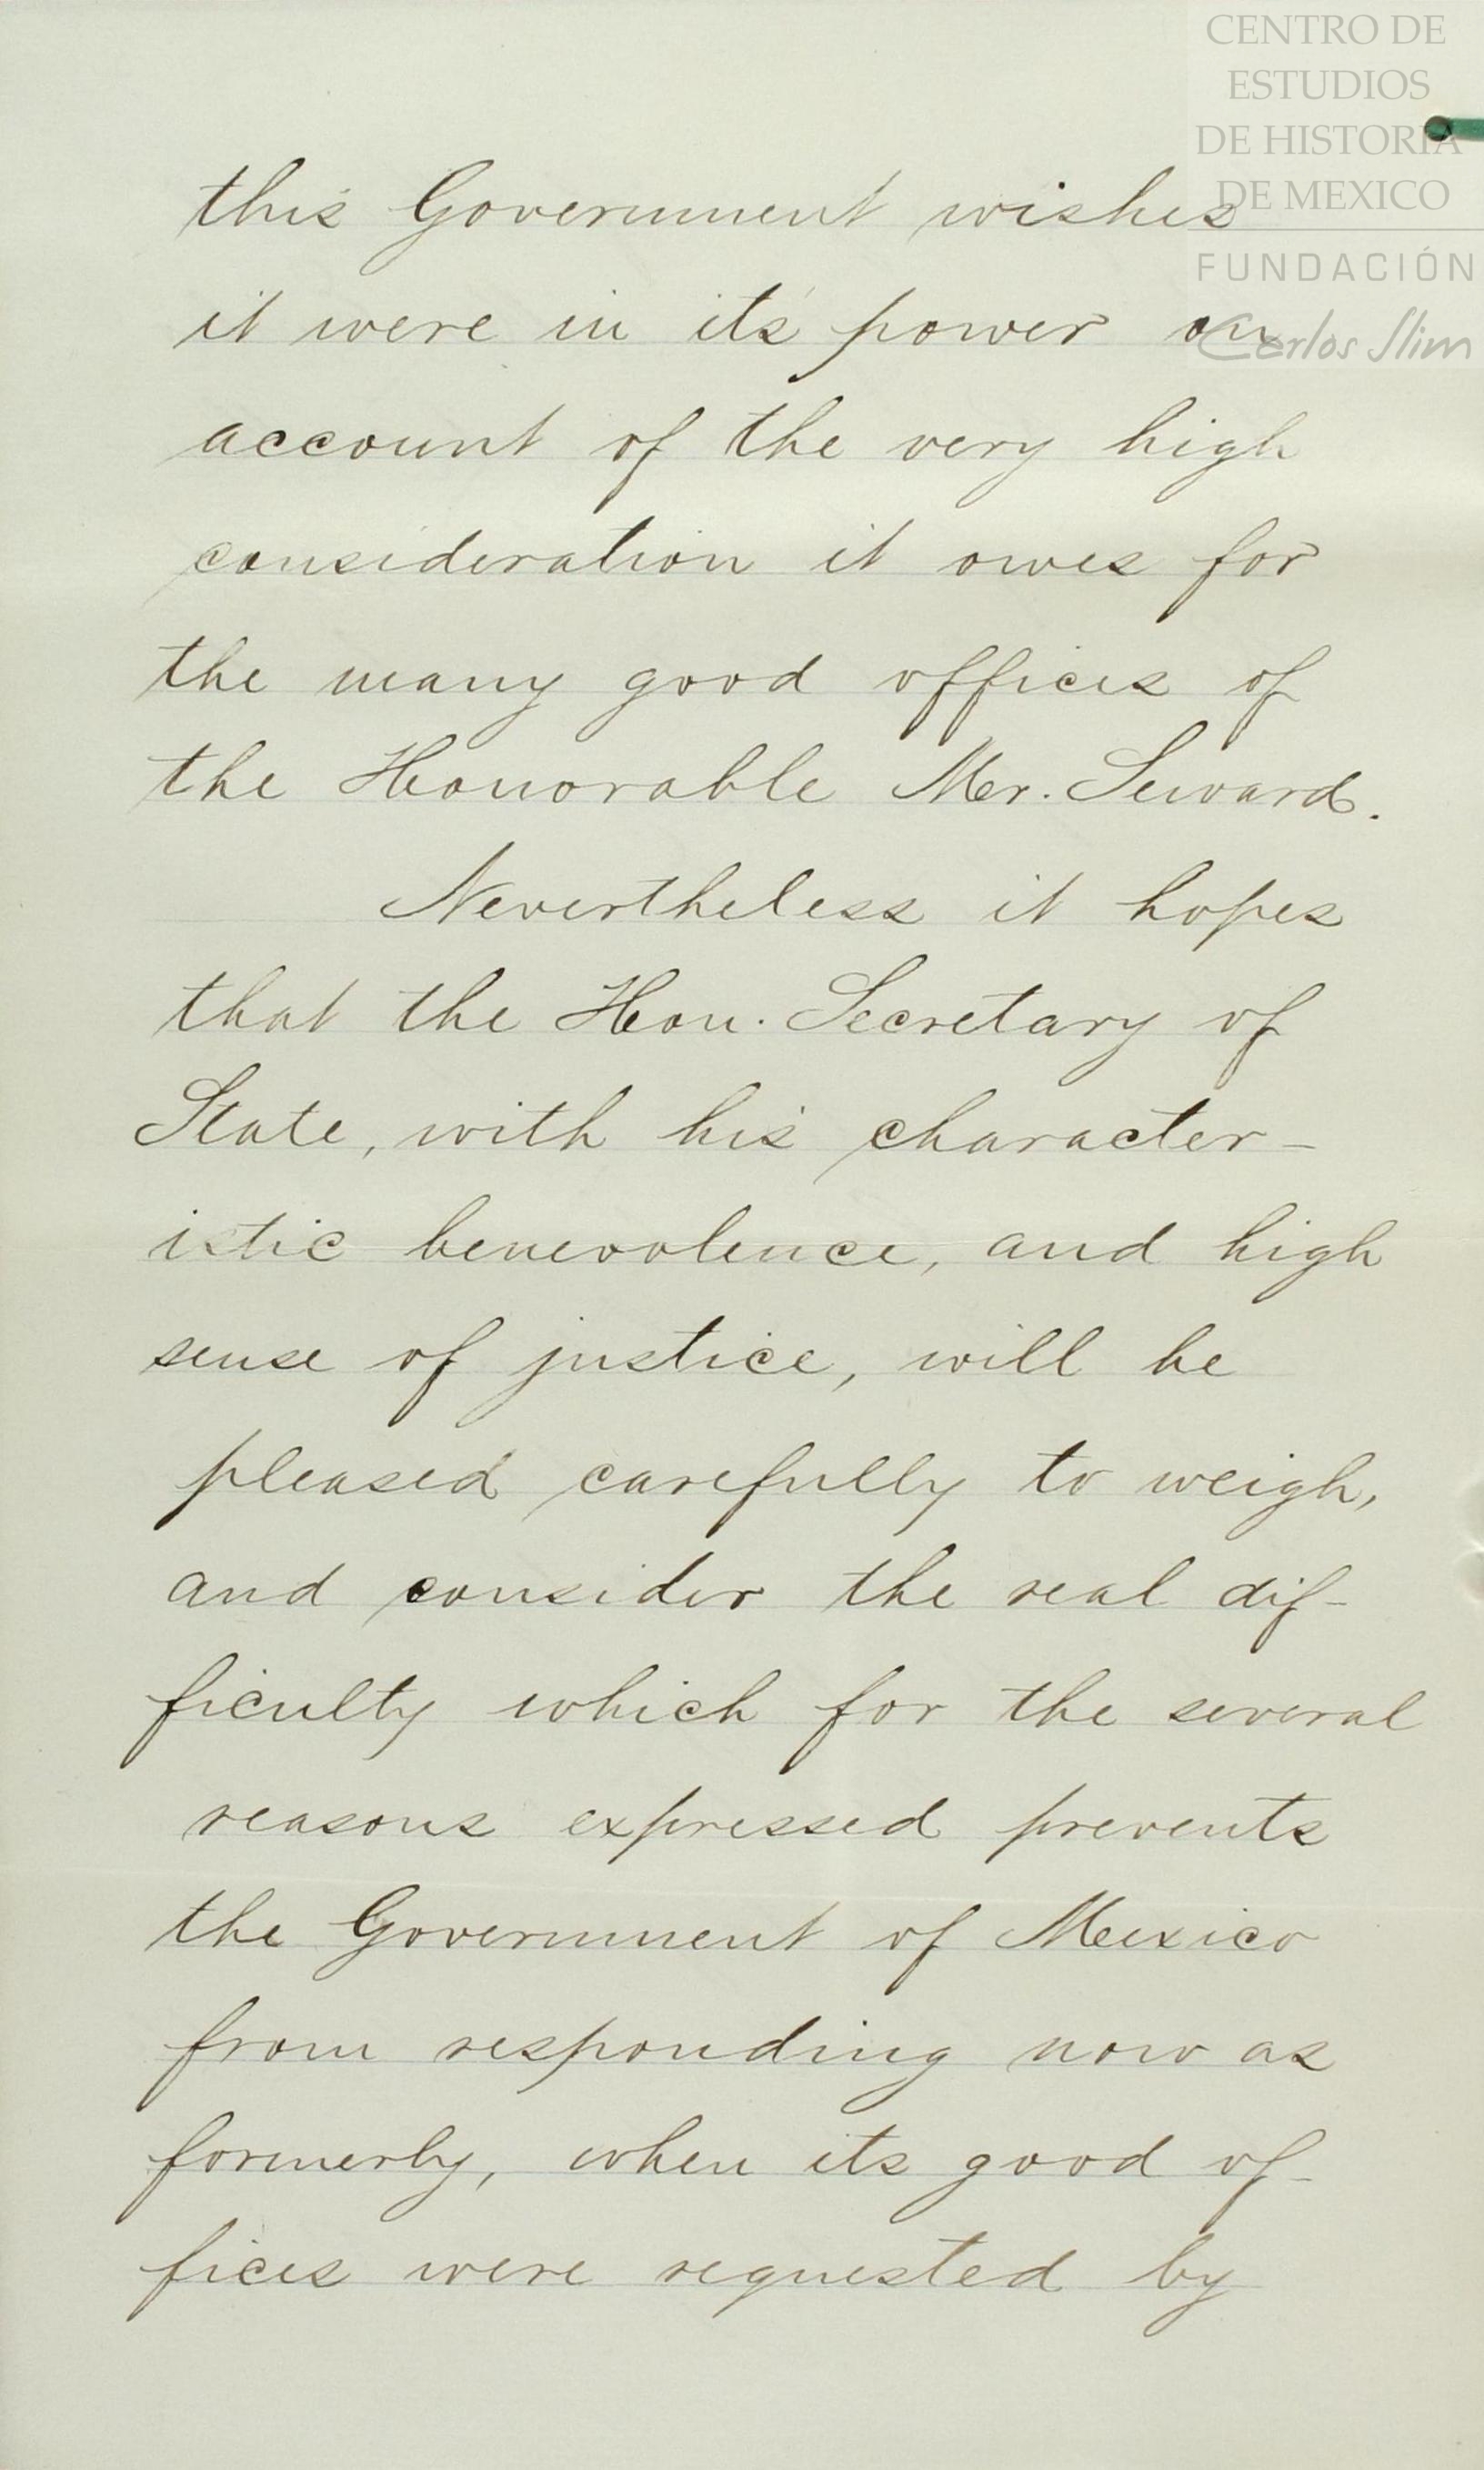 CENTRO DE
ESTUDIOS
DE HISTORIA
DE MEXICO
FUNDACIÓN
Carlos Slim
this Government wishes
it were in its power on
account of the very high
consideration it owes for
the many good offices of
the Honorable Mr. Seward.
Nevertheless it hopes
that the Hon. Secretary of
State, with his character-
istic benevolence, and high
sense of justice, will be
pleased carefully to weigh,
and consider the real dif-
ficulty which for the several
reasons expressed prevents
the Government of Mexico
from responding now as
formerly, when its good of-
fices were requested by